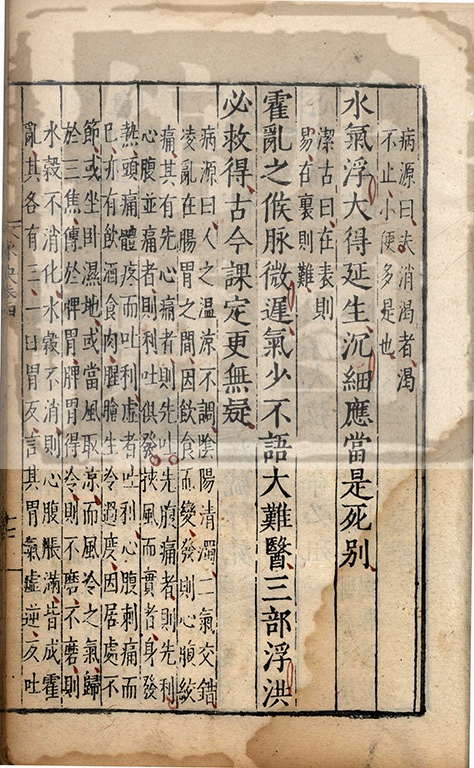 病源曰夫消渴者渴
不止小便多是也
水氣浮大得延生沉細應當是死別
潔古曰在表則
易在裏則難
霍亂之候脉微遲氣少不語大難醫三部浮洪
必救得古今課定更無疑
病源曰人之温涼不調陰陽清濁二氣交錯
凌亂在腸胃之間因飲食而變發則心腹絞
痛其有先心痛者則先吐先腹痛者則先利
心腹並痛者則利吐俱發挾風而實者身發
熱頭痛體疼而吐利虚者吐利心腹刺痛而
已亦有飲酒食肉腥膾生冷過度因居處不
節或坐卧濕地或當風取涼而風冷之氣歸
於三焦傳於脾胃脾胃得冷則不磨不磨則
水榖不消化水榖不消則心腹脹滿皆成霍
亂其各有三一曰胃反言其胃氣虚逆反吐